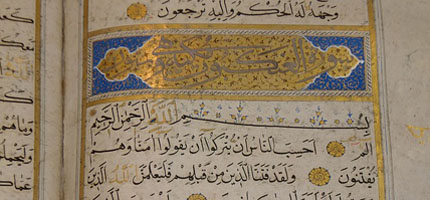 وجهه له الحكم واليه ترجعون
سورة العنكبوت
بسم الله الرحمن الرحيم
الم احسب الناس ان يتركوا ان يقولوا امنا وهم
لا يفتنون ولقد فتنا الذين من قبلهم فليعلمن الله الذين
وما هم
وليحملن
عما كا